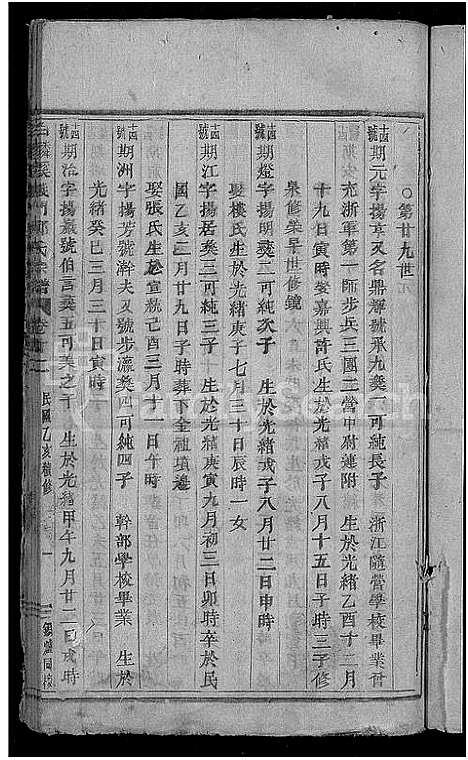 ○第廿九世
十四號期元字揚亨又名鼎輝號承九奕一可純長子 浙江隨營學校畢業曾
充浙軍第一師步兵三團二營中尉連附 生於光緒乙酉十二月
十九日寅時娶嘉興許氏生於光緒戊子八月十五日子時三子修
榮修世修鏡
十四號期燈字揚明奕二可純次子 生於光緒戊子八月廿二日申時
娶樓氏生於光緒庚子七月三十日辰時一女
十四號期江字揚居奕三可純三子 生於光緒庚寅九月初三日卯時卒於民
國乙亥二月廿九日子時葬下金祖墳邊
娶張氏生於宣統己酉三月十一日午時
十四號期洲字揚芳號幹夫又號步瀛奕四可純四子 幹部學校畢業 生於
光緒癸巳三月三十日寅時
十四號期治字揚義號伯言奕五可美之子 生於光緒甲午九月廿二日戌時
麟溪義門鄭氏宗譜 卷
民國乙亥續修
一